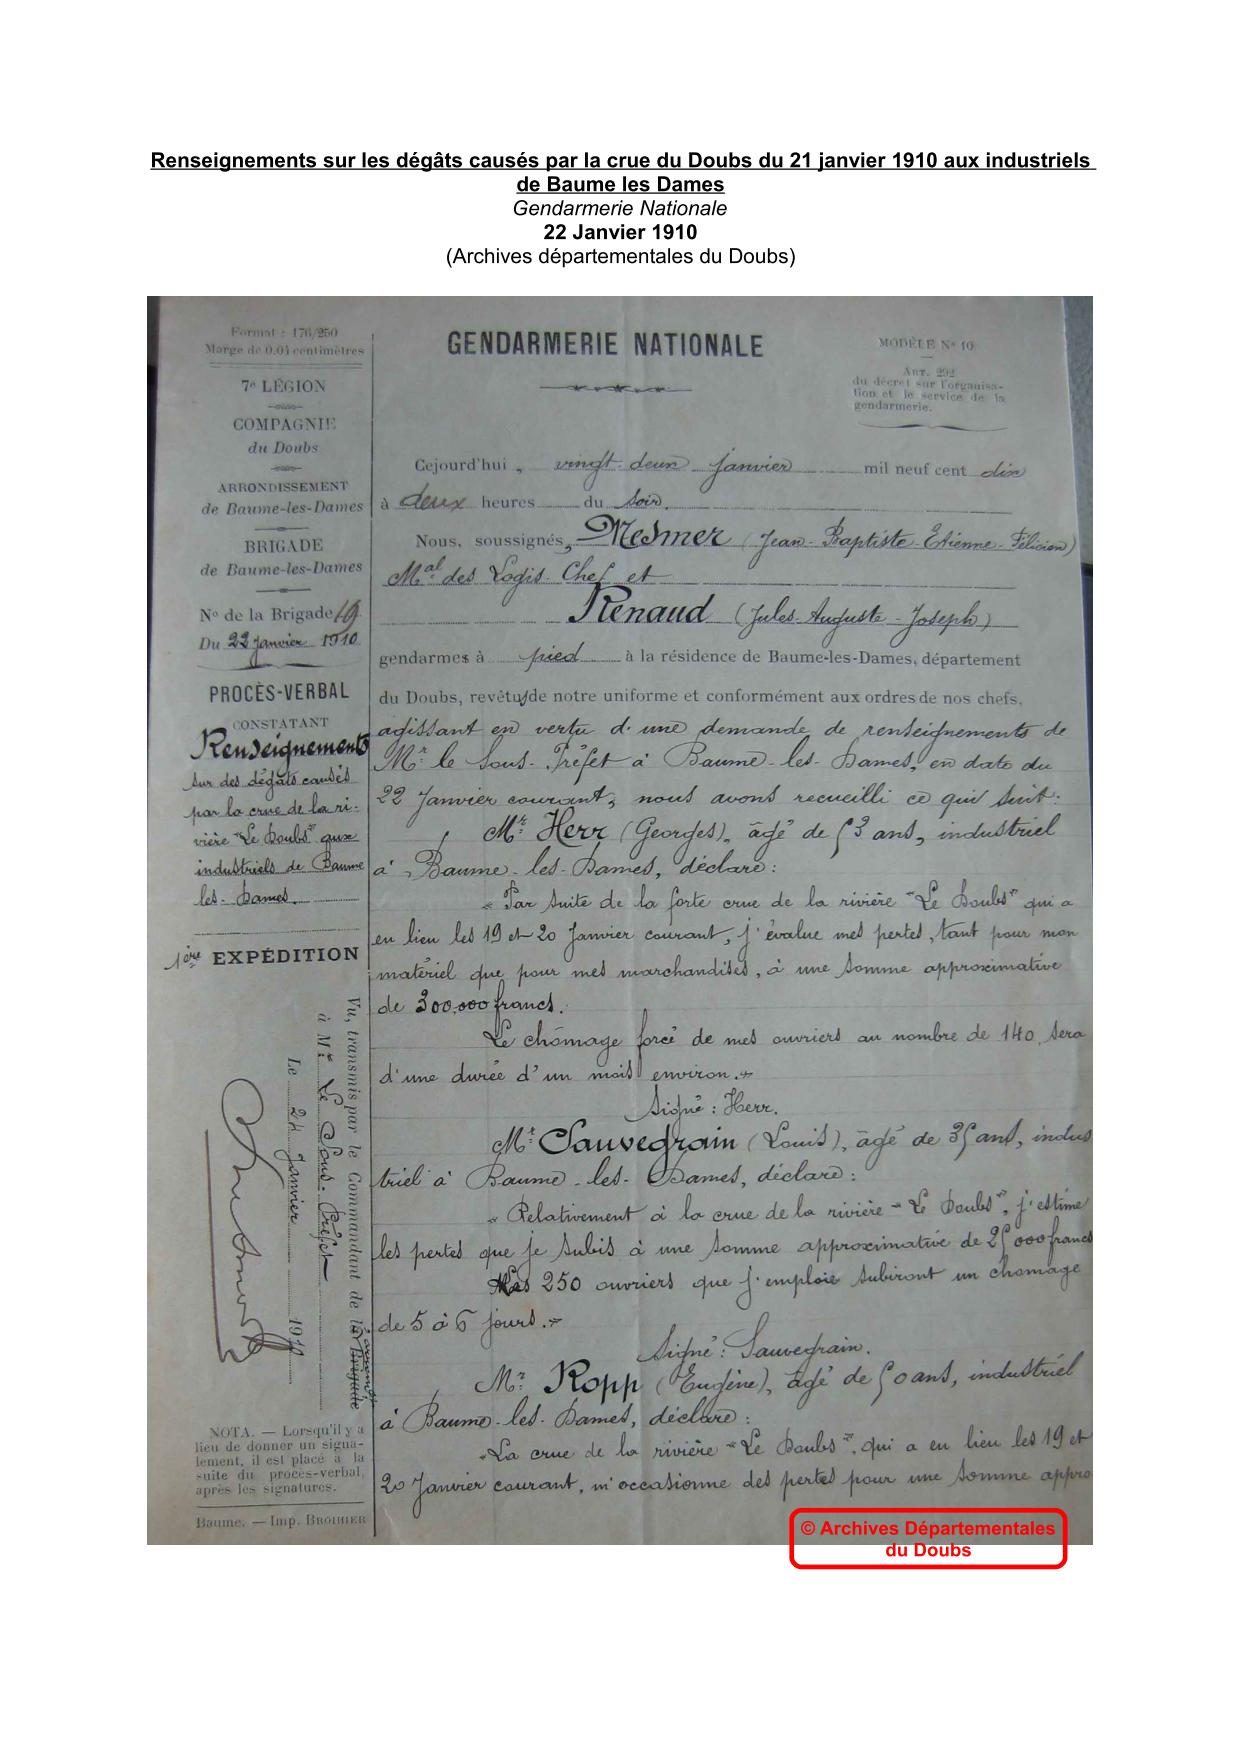 Renseignements sur les dégâts causés par la crue du Doubs du 21 janvier 1910 aux industriels
de Baume les Dames
Gendarmerie Nationale
22 Janvier 1910
(Archives départementales du Doubs)
Format : 176/250
Marge de 0.04 centimètres
7e LÉGION
COMPAGNIE
du Doubs
ARRONDISSEMENT
de Baume-les-Dames
BRIGADE
de Baume-les-Dames
No de la Brigade 19
Du 22 Janvier 1910
PROCÈS-VERBAL
CONSTATANT
Renseignements
sur des dégâts causés
par la crue de la ri-
vière "Le Doubs" aux
industriels de Baume
les-Dames.
1ère EXPÉDITION
Vu, transmis par le Commandant de la Brigade
à Mr Le Sous-Préfet
Le 24 Janvier 1910
NOTA. — Lorsqu'il y a
lieu de donner un signa-
lement, il est placé à la
suite du procès-verbal,
après les signatures.
Baume. — Imp. BROIHIER
GENDARMERIE NATIONALE
MODÈLE No 10
ART. 292
du décret sur l'organisa-
tion et le service de la
gendarmerie.
Cejourd'hui, vingt deux janvier mil neuf cent dix
à deux heures du soir.
Nous, soussignés, Mesmer (Jean-Baptiste-Etienne-Félicien)
Mal des Logis-Chef et
Renaud (Jules-Auguste-Joseph)
gendarmes à pied à la résidence de Baume-les-Dames, département
du Doubs, revêtus de notre uniforme et conformément aux ordres de nos chefs,
agissant en vertu d'une demande de renseignements de
Mr le Sous-Préfet à Baume-les-Dames, en date du
22 Janvier courant, nous avons recueilli ce qui suit :
Mr Herr (Georges), âgé de 53 ans, industriel
à Baume-les-Dames, déclare :
« Par suite de la forte crue de la rivière "Le Doubs" qui a
en lieu les 19 et 20 Janvier courant, j'évalue mes pertes, tant pour mon
matériel que pour mes marchandises, à une somme approximative
de 300.000 francs.
Le chômage forcé de mes ouvriers au nombre de 140, sera
d'une durée d'un mois environ. »
Signé : Herr.
Mr Sauvegrain (Louis), âgé de 35 ans, indus
triel à Baume-les-Dames, déclare :
« Relativement à la crue de la rivière "Le Doubs", j'estime
les pertes que je subis à une somme approximative de 25000 francs
Mes 250 ouvriers que j'emploie subiront un chomage
de 5 à 6 jours. »
Signé : Sauvegrain.
Mr Ropp (Eugène), âgé de 50 ans, industriel
à Baume-les-Dames, déclare :
« La crue de la rivière "Le Doubs", qui a en lieu les 19 et
20 Janvier courant, m'occasionne des pertes pour une somme appro
© Archives Départementales
du Doubs